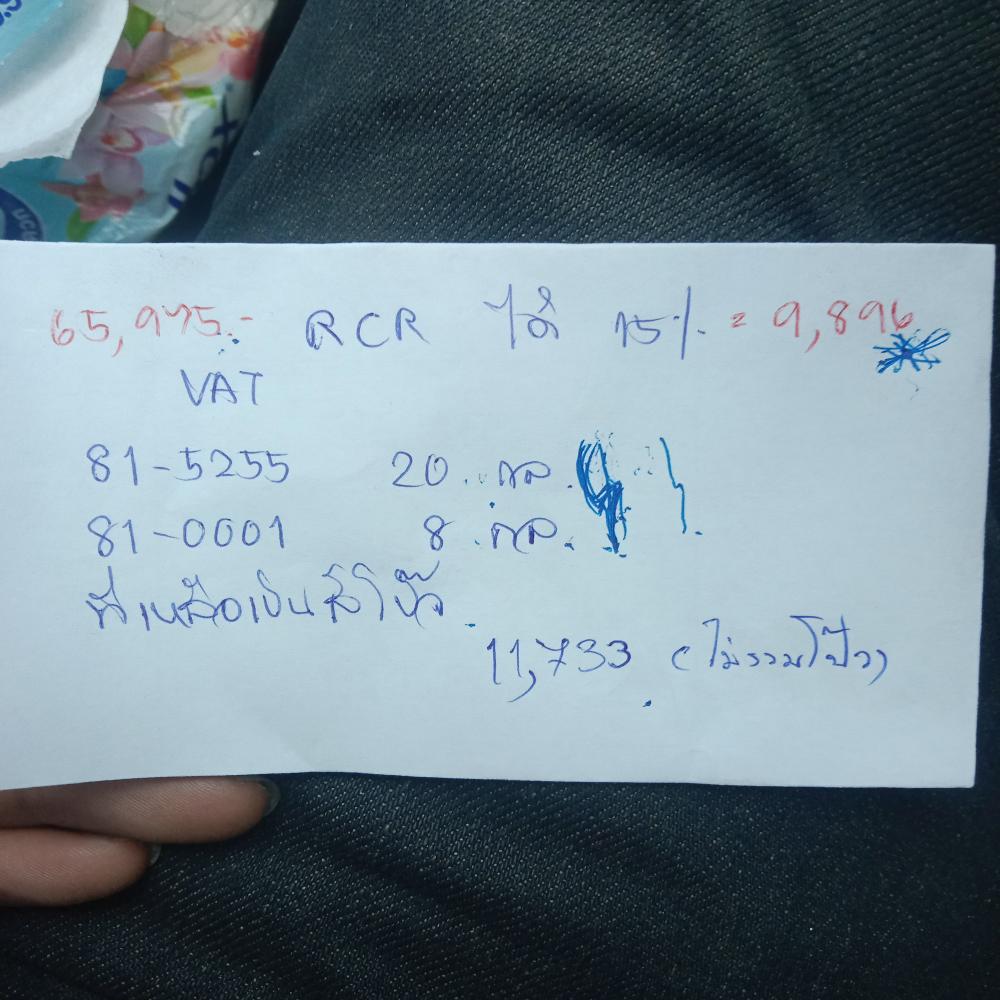 65,975.- RCR ได้ 15% = 9,896
VAT
81-5255 20 กล.
81-0001 8 กล.
ที่เหลือเป็นสโป๊ว
11,733 (ไม่รวมโป๊ว)